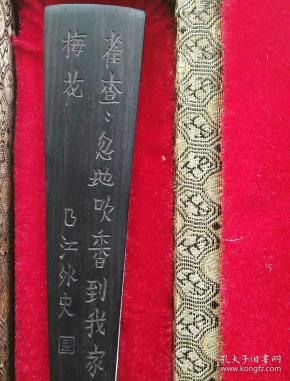 雀查〻忽地吹香到我家
梅花
乃江外史
孔夫子旧书网
book.kongfz.com